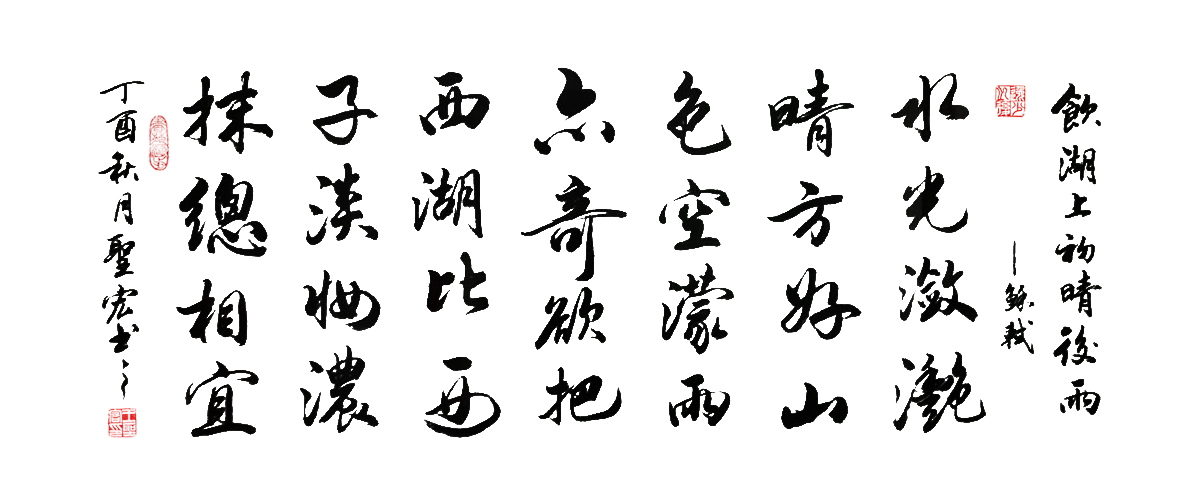 飲湖上初晴後雨
蘇軾
水光瀲灩
晴方好山
色空濛雨
亦奇欲把
西湖比西
子淡妝濃
抹總相宜
丁酉秋月聖宏书